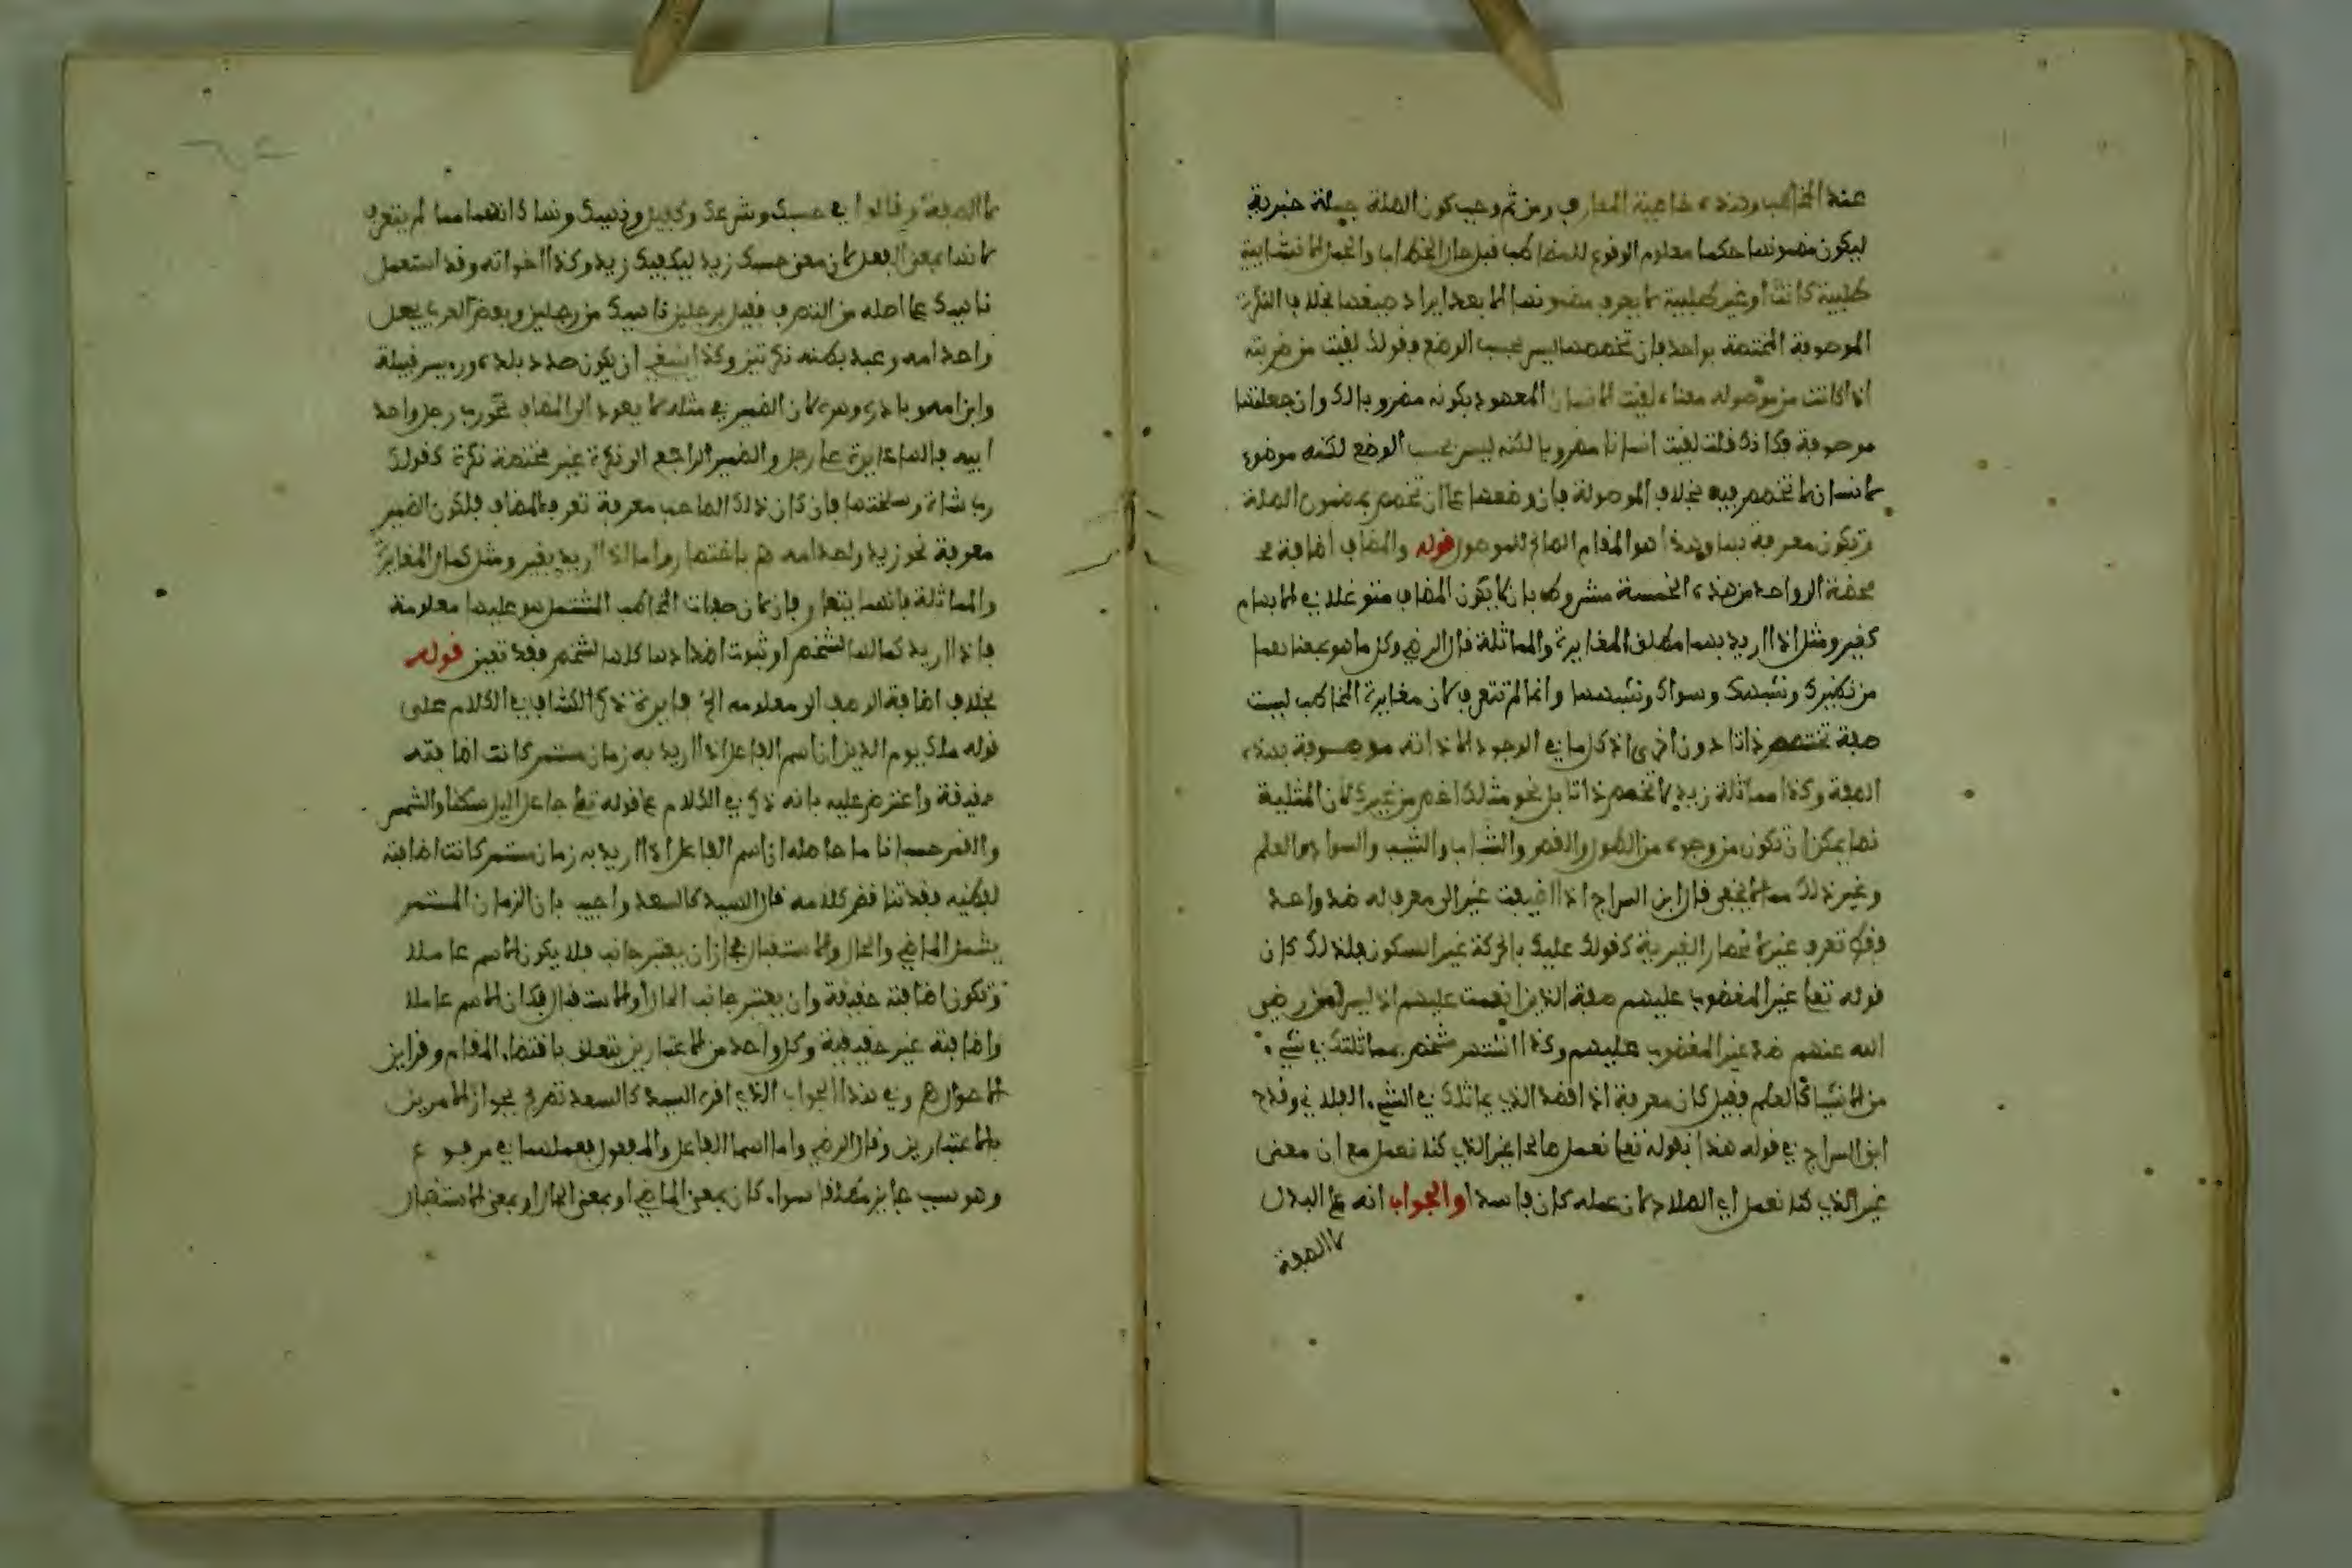 عند المخاطب وهذه خاصية المعارف ومن ثم وجب كون الصلة جملة خبرية
ليكون مضمونها حكما معلوم الوقوع للمخاطب قبل حال الخطاب والجمل الانشايية
طلبية كانت او غير طلبية لا يعرف مضمونها الا بعد ايراد صيغها بخلاف النكرة
الموصوفة المختصة بواحد فان تخصصها ليس بحسب الوضع فقولك لقيت من ضربته
اذا كانت من موصوله معناه لقيت الانسان المعهود بكونه مضروبا لك وان جعلتها
موصوفة فكانك قلت لقيت انسانا مضروبا لكنه ليس بحسب الوضع لكنه موضوع
لانسان لا تخصص فيه بخلاف الموصولة فان وضعها على ان تخصص بمضمون الصلة
وتكون معرفة بها وهذا هو المقام الصالح للموصول قوله والمضاف اضافة
محضة الى واحد من هذه الخمسة مشروط بان لا يكون المضاف متوغلا في الابهام
كغير ومثل اذا اريد بهما مطلق المغايرة والمماثلة قال الرضي وكل ما هو بمعناهما
من نظيرك وشبهك وسواك وشبهها وانما لم تتعرف لان مغايرة المخاطب ليست
صفة تختص ذاتا دون اخرى اذ كل ما في الوجود الا ذاته موصوفة بهذه
الصفة وكذا مماثلة زيد لا تخصص ذاتا بل نحو مثلك اخص من غيرك لان المثلية
نها يمكن ان تكون من وجوه من الطول والقصر والشباب والشيب والسواد والعلم
وغير ذلك مما لا يخفى قال ابن السراج اذا اضيفت غير الى معرف له ضد واحد
فقط تعرف غير لانحصار الغيرية كقولك عليك بالحركة غير السكون فلذلك كان
قوله تعالى غير المغضوب عليهم صفة الذين انعمت عليهم اذ ليس لمن رضي
الله عنهم ضد غير المغضوب عليهم وكذا اذا اشتهر شخص بمماثلتك في شيء
من الاشياء كالعلم فقيل كان معرفة اذا قصد الذي يماثلك في الشيء الفلاني وقدح
ابن السراج في قوله هذا بقوله تعالى نعمل صالحا غير الذي كنا نعمل مع ان معنى
غير الذي كنا نعمل اي الصلاح لان عمله كان فاسدا والجواب انه على البدل
لا الصفة
لا الصفة وقالوا في حسبك وشرعك وكفيك وناهيك ونها كانهما مما لم يتعرف
لانها بمعنى الفعل لان معنى حسبك زيد ليكفيك زيد وكذا اخواته وقد استعمل
ناهيك على اصله من التصرف فقيل برجلين ناهيك من رجلين وبعض العرب يجعل
واحد امه وعبد بطنه نكرتين وكذا ينبغي ان يكون صدر بلده وريس قبيلة
وابن امه لان الضمير في مثله لا يعود الى المضاف نحو رب رجل واحد
ابيه فالهاء عايدة على رجل والضمير الراجع الى نكرة غير مختصة نكرة كقولك
رب شاة وسخلتها فان كان ذلك الصاحب معرفة تعرف المضاف فلكون الضمير
معرفة نحو زيد واحد امه هـ باختصار واما اذا اريد بغير ومثل كمال المغايرة
والمماثلة فانهما يتعارفان لان صفات المخاطب المشتمل هو عليها معلومة
فاذا اريد كمالها لشخص او ثبوت اضدادها كلها لشخص فقد تعين قوله
بخلاف اضافة الوصف الى معموله الخ فايدة ذكر الكشاف في الكلام على
قوله ملك يوم الدين ان اسم الفاعل اذا اريد به زمان مستمر كانت اضافته
حقيقة واعترض عليه بانه ذكر في الكلام على قوله تعالى جاعل اليل سكنا والشمس
والقمر حسبانا ما حاصله ان اسم الفاعل اذا اريد به زمان مستمر كانت اضافته
لفظيه فقد تناقض كلامه قال السيد كالسعد واجيب بان الزمان المستمر
يشمل الماضي والحال والاستقبال فجاز ان يعتبر جانب فلا يكون الاسم عاملا
وتكون اضافته حقيقة وان يعتبر جانب الحال والاستقبال فكان الاسم عاملا
واضافته غير حقيقية وكل واحد من الاعتبارين يتعلق باقتضاء المقام وقراين
الاحوال هـ وفي هذا الجواب الذي اقره السيد كالسعد تصريح بجواز الامرين
بالاعتبارين وقال الرضي واما اسما الفاعل والمفعول فعملهما في مرفوع
وهو سبب جايز مطلقا سواء كان بمعنى الماضي او بمعنى الحال او بمعنى الاستقبال